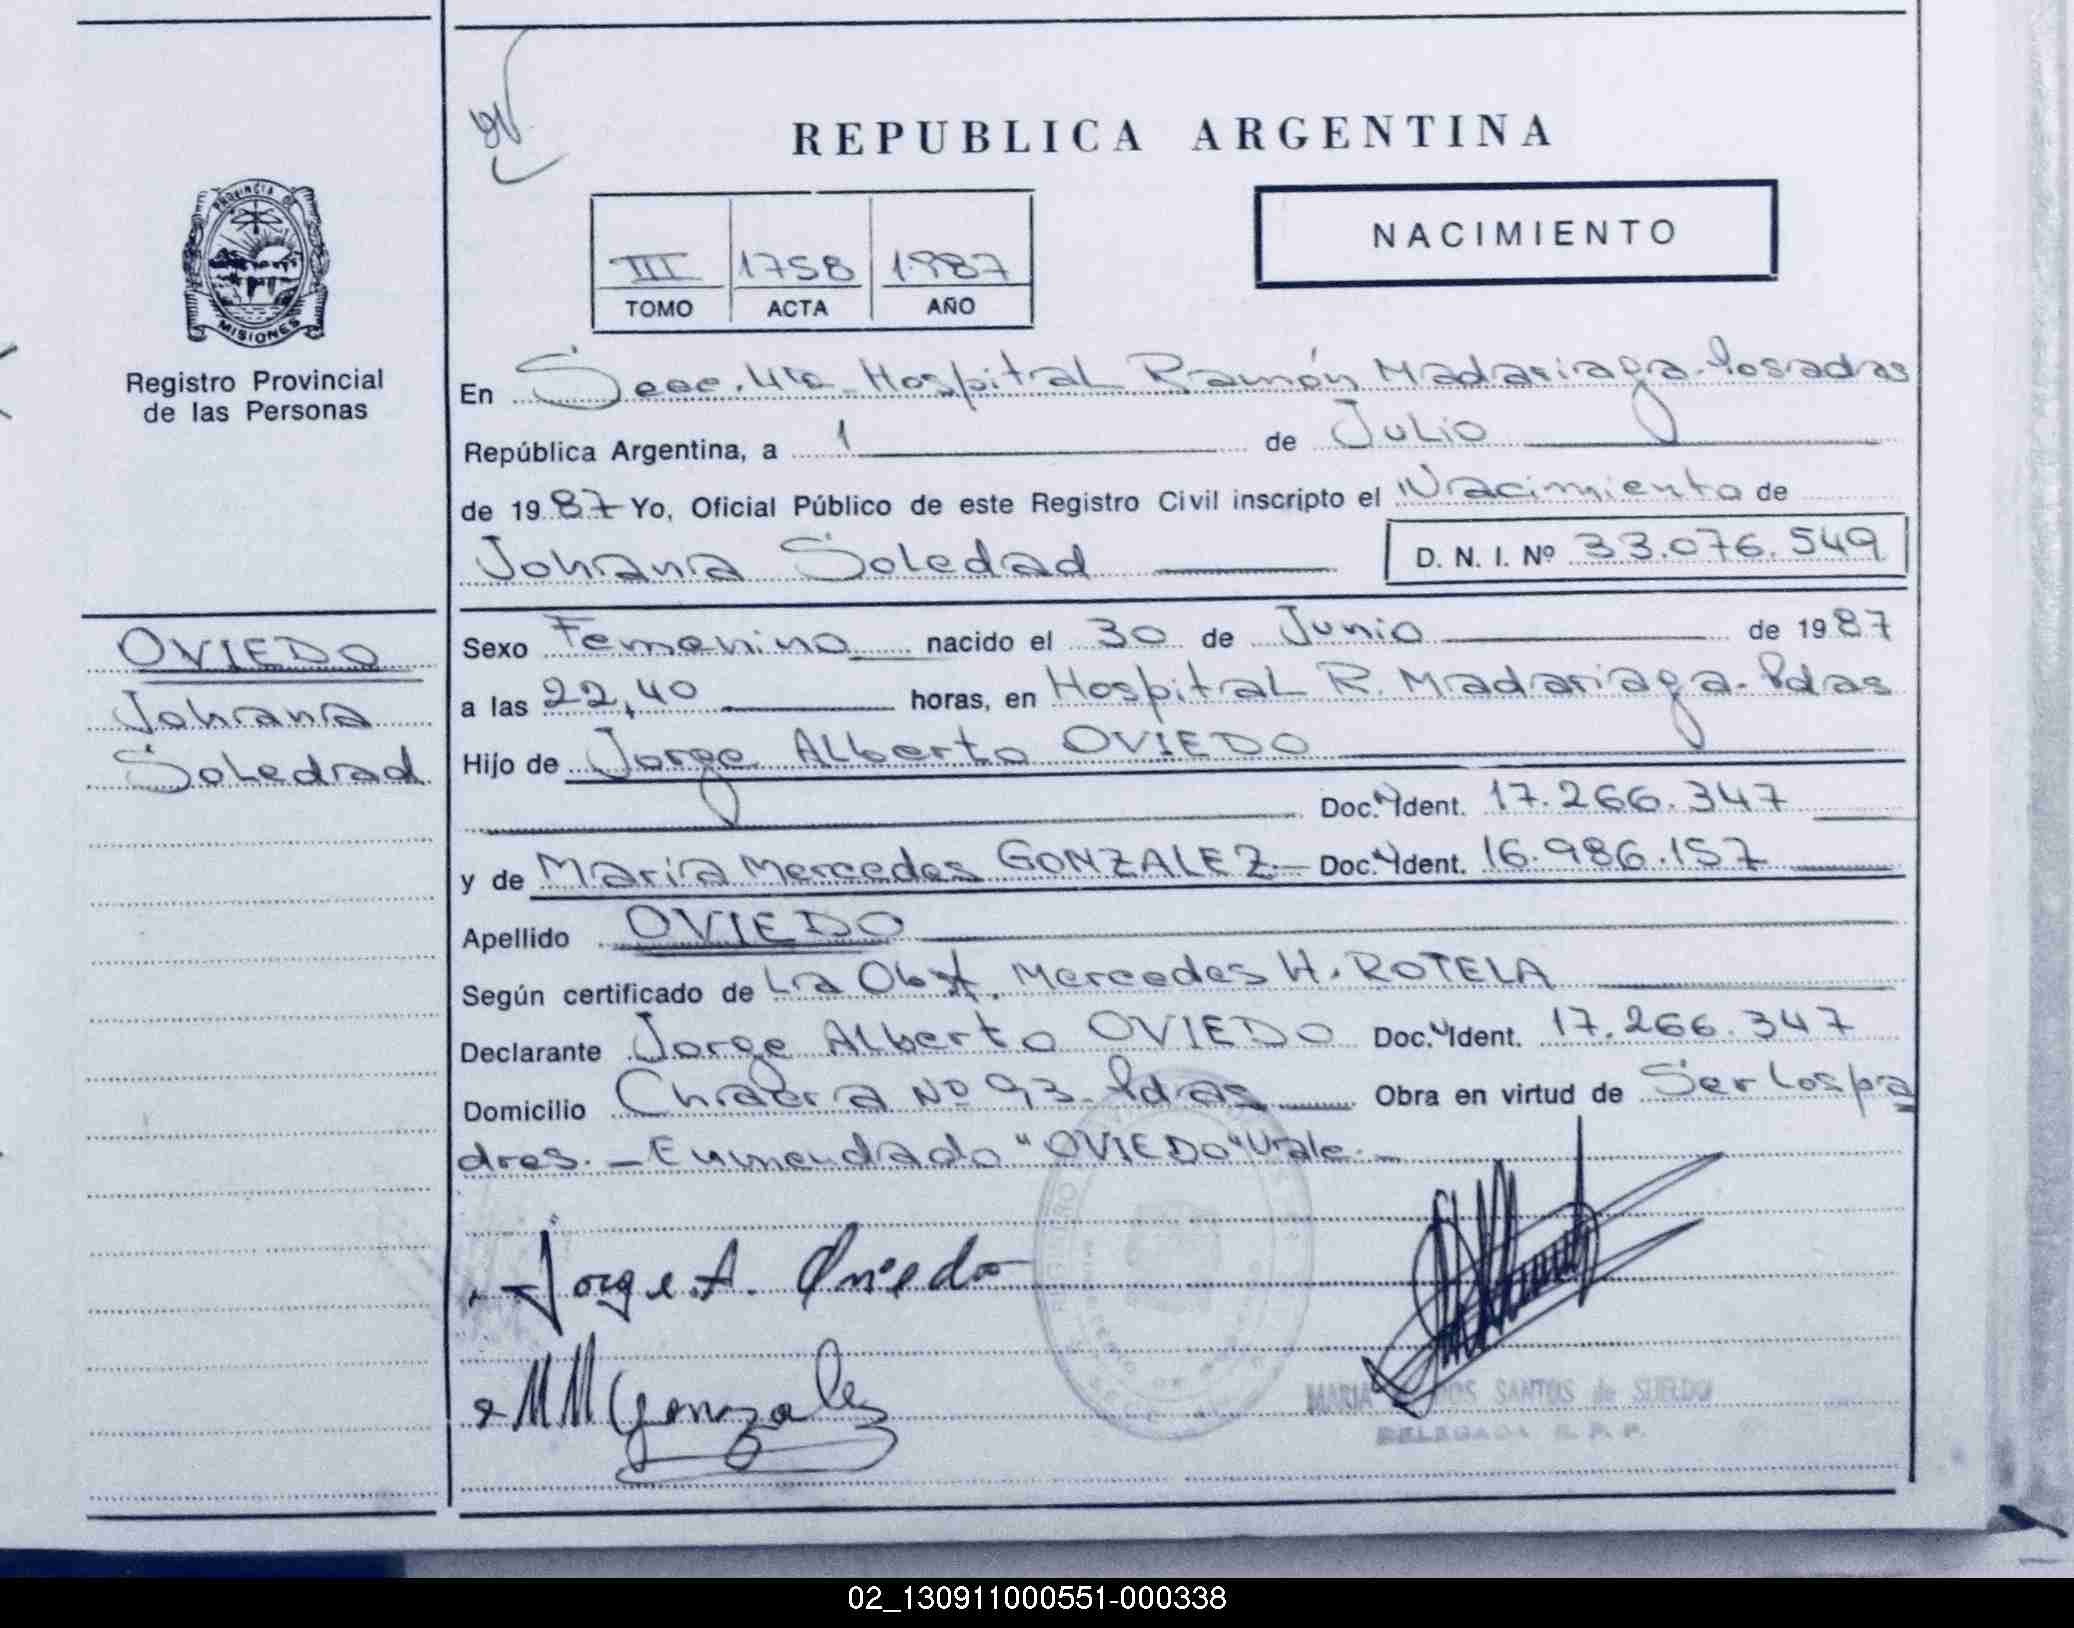 REPUBLICA ARGENTINA
PROVINCIA DE
MISIONES
Registro Provincial
de las Personas
NACIMIENTO
III 1758 1987
TOMO ACTA AÑO
En Secc. 4ta Hospital Ramón Madariaga-Posadas
República Argentina, a 1 de Julio
de 1987 Yo, Oficial Público de este Registro Civil inscripto el Nacimiento de
Johana Soledad D. N. I. Nº 33.076.549
OVIEDO
Johana
Soledad
Sexo Femenino nacido el 30 de Junio de 1987
a las 22,40 horas, en Hospital R. Madariaga-Pdas
Hijo de Jorge Alberto OVIEDO
Doc. Ident. 17.266.347
y de María Mercedes GONZALEZ Doc. Ident. 16.986.157
Apellido OVIEDO
Según certificado de La Obst. Mercedes H. ROTELA
Declarante Jorge Alberto OVIEDO Doc. Ident. 17.266.347
Domicilio Chacra Nº 93 Pdas Obra en virtud de Ser los pa
dres. - Enmendado "OVIEDO" Vale. -
Jorge A. Oviedo
MM Gonzalez
MARIA DOS SANTOS de SUELDO
DELEGADA R. P. P.
02_130911000551-000338